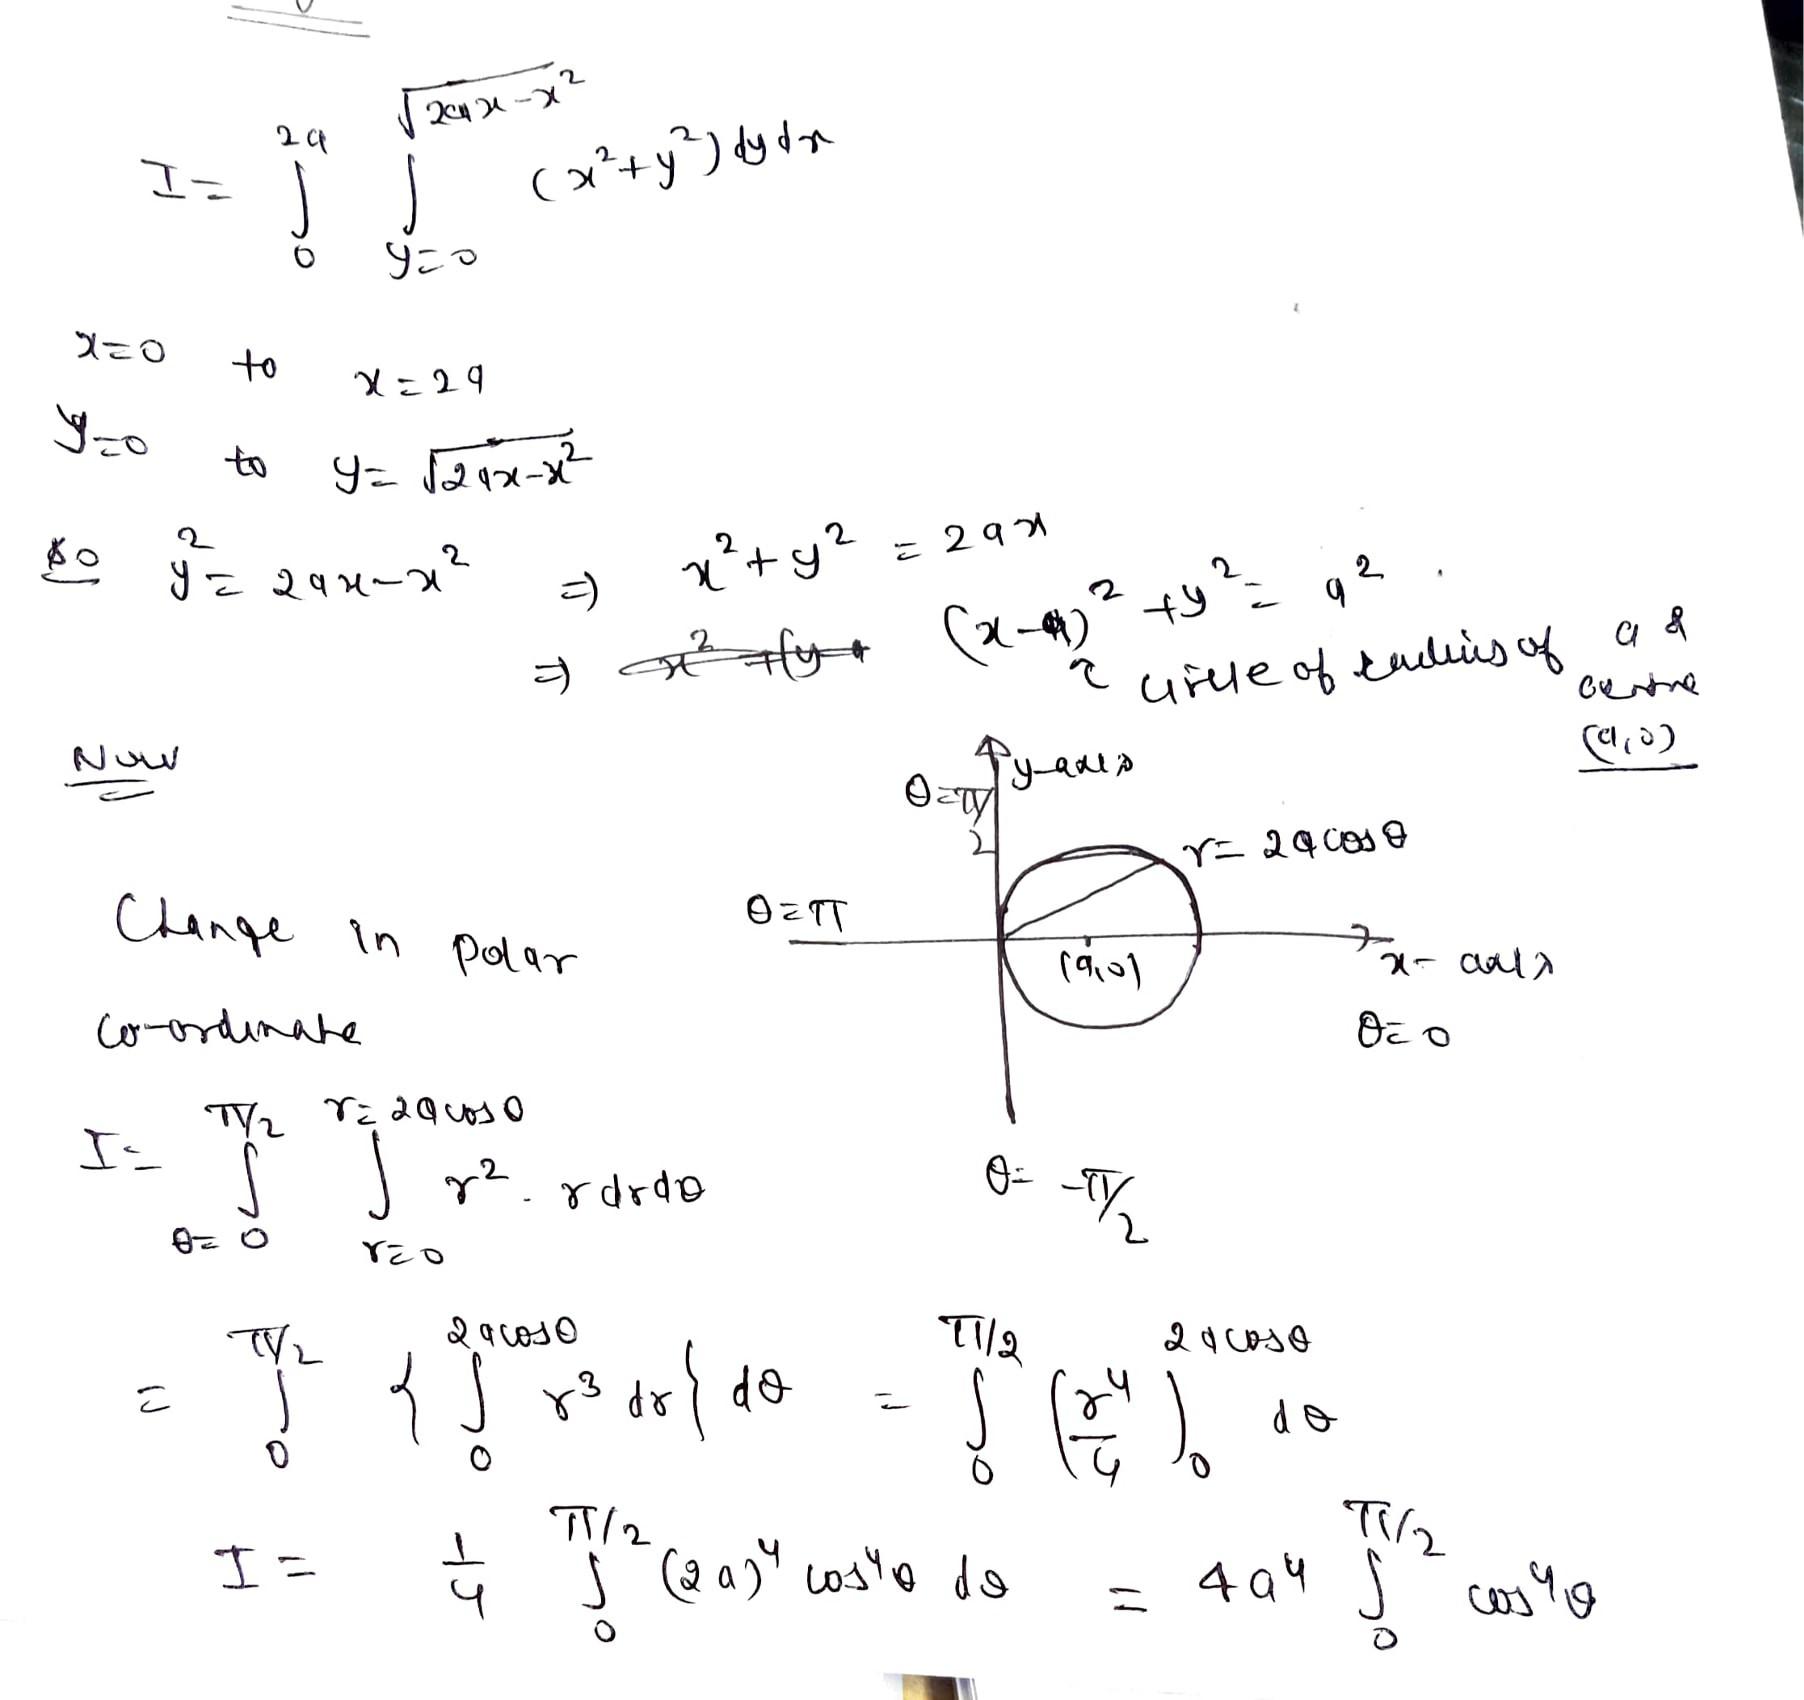 I = ∫₀^{2a} ∫_{y=0}^{√(2ax-x²)} (x²+y²) dy dx
x=0 to x=2a
y=0 to y=√(2ax-x²)
So y² = 2ax-x² ⇒ x²+y² = 2ax
⇒ (x-a)²+y² = a².
circle of radius of a & centre (a,0)
Now
y-axis
θ=π/2
r=2a cosθ
θ=π
(a,0)
x-axis
θ=0
θ=-π/2
Change in polar
co-ordinate
I = ∫_{θ=0}^{π/2} ∫_{r=0}^{r=2a cosθ} r². r dr dθ
= ∫₀^{π/2} { ∫₀^{2a cosθ} r³ dr } dθ = ∫₀^{π/2} (r⁴/4)₀^{2a cosθ} dθ
I = 1/4 ∫₀^{π/2} (2a)⁴ cos⁴θ dθ = 4a⁴ ∫₀^{π/2} cos⁴θ